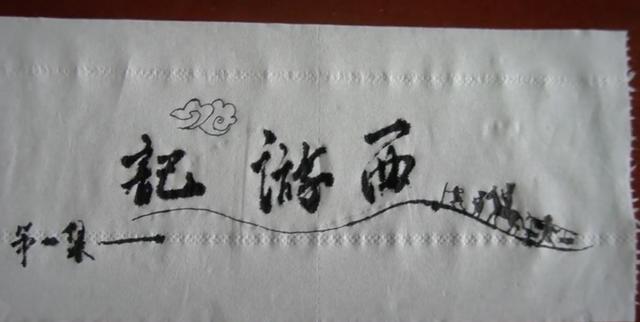 西游記
第一集